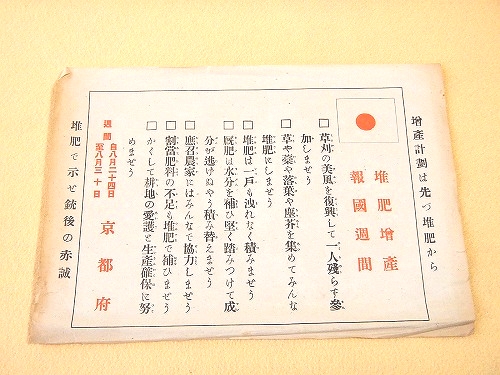 増産計劃は先づ堆肥から
堆肥増産
報國週間
□草刈の美風を復興して一人残らず参
加しませう
□草や藁や落葉や塵芥を集めてみんな
堆肥にしませう
□堆肥は一戸も洩れなく積みませう
□厩肥は水分を補ひ堅く踏みつけて成
分が逃げぬやう積み替えませう
□應召農家にはみんなで協力しませう
□割當肥料の不足も堆肥で補ひませう
□かくして耕地の愛護と生産確保に努
めませう
週間 自八月二十四日
至八月三十日
京都府
堆肥で示せ銃後の赤誠